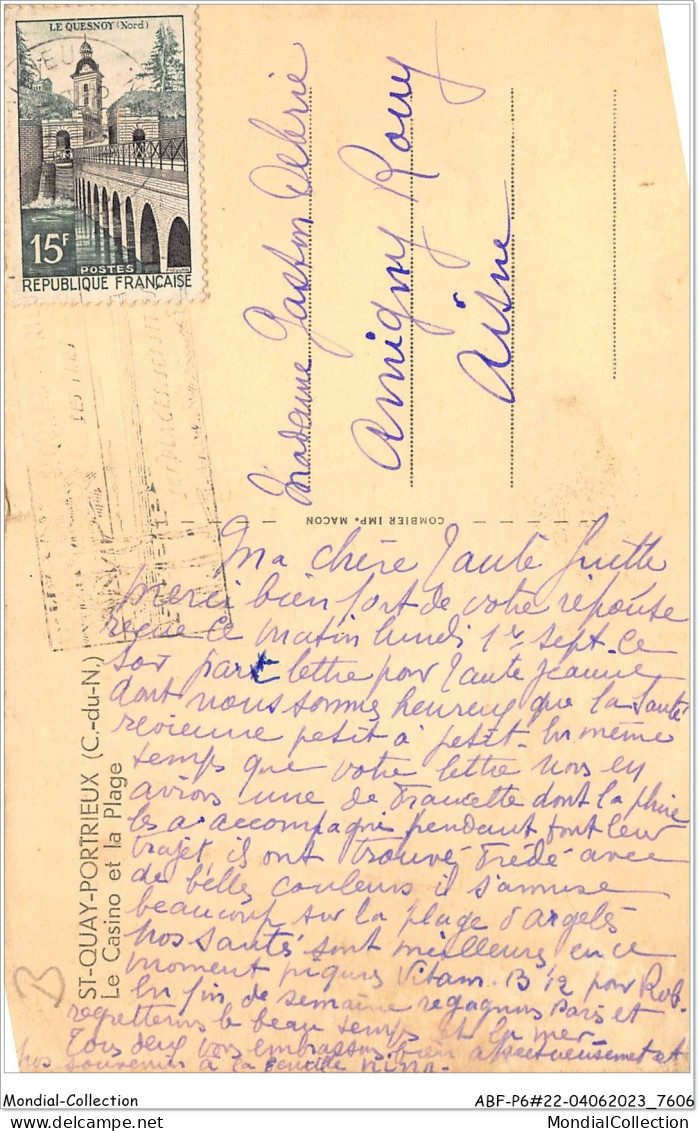 LE QUESNOY (Nord)
15F
POSTES
REPUBLIQUE FRANÇAISE
Madame Gaston Debrie
Amigny Rouy
Aisne
COMBIER IMP. MACON
ST-QUAY-PORTRIEUX (C.-du-N.)
Le Casino et la Plage
Ma chère Tante
merci bien fort de votre réponse
reçue ce matin lundi 1er sept. Ce
soir part lettre pour Tante Jeanne
dont nous sommes heureux que la santé
revienne petit à petit. En même
temps que votre lettre nous en
avions une de Francette dont la pluie
les a accompagné pendant tout leur
trajet, ils ont trouvé Dédé avec
de belles couleurs il s'amuse
beaucoup sur la plage d'argelès
Nos santés sont meilleures en ce
moment piqures Vitam. B 12 pour Rob.
En fin de semaine regagnons Paris et
regretterons le beau temps et la mer
Tous deux vous embrassons bien affectueusement et
nos souvenirs à la famille Nina.
B
Mondial-Collection
ABF-P6#22-04062023_7606
Mondial-Collection
MondialCollection